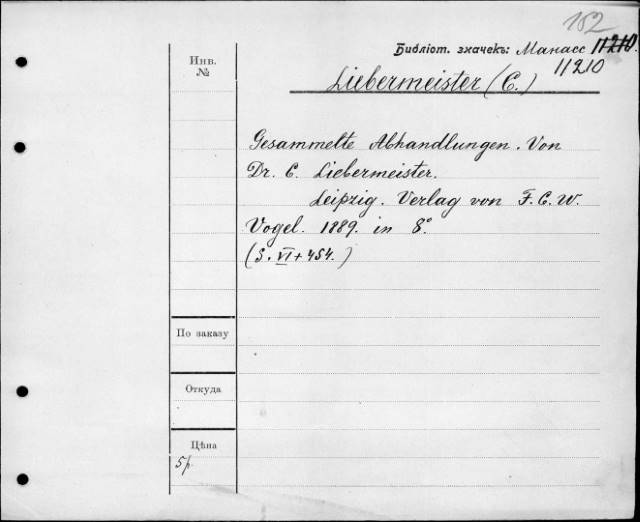 152
Библіот. значекъ: Манасс 11210.
11210
Инв.
№
Liebermeister (C.)
Gesammelte Abhandlungen. Von
Dr. C. Liebermeister.
Leipzig. Verlag von F. C. W.
Vogel. 1889. in 8°.
(S. VI + 454.)
По заказу
Откуда
Цѣна
5 р.